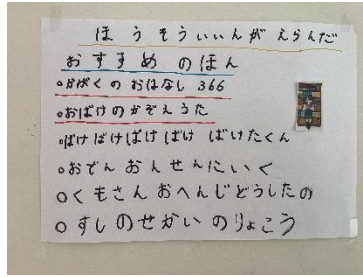 ほうそういいんが えらんだ
おすすめ のほん
○かがくの おはなし 366
○おばけのかぞえうた
○ばけばけばけばけ ばけたくん
○おでん おんせんにいく
○くもさん おへんじどうしたの
○すしのせかい のりょこう